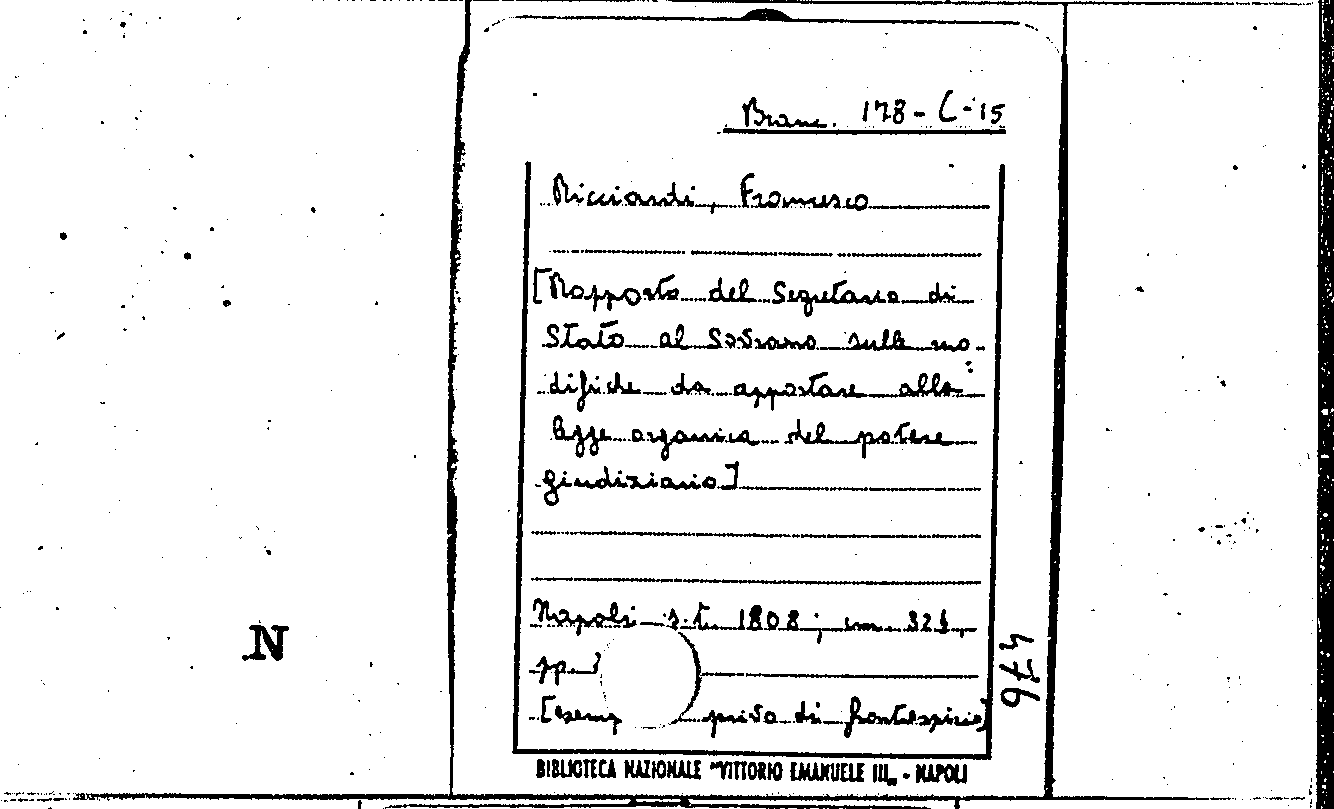 Branc. 178-C-15
Ricciardi, Francesco
[Rapporto del Segretario di
Stato al Sovrano sulle mo-
difiche da apportare alla
legge organica del potere
giudiziario]
Napoli s.t. 1808; cm. 32
pp.
[esemp privo di frontespizio]
476
N
BIBLIOTECA NAZIONALE "VITTORIO EMANUELE III„ - NAPOLI